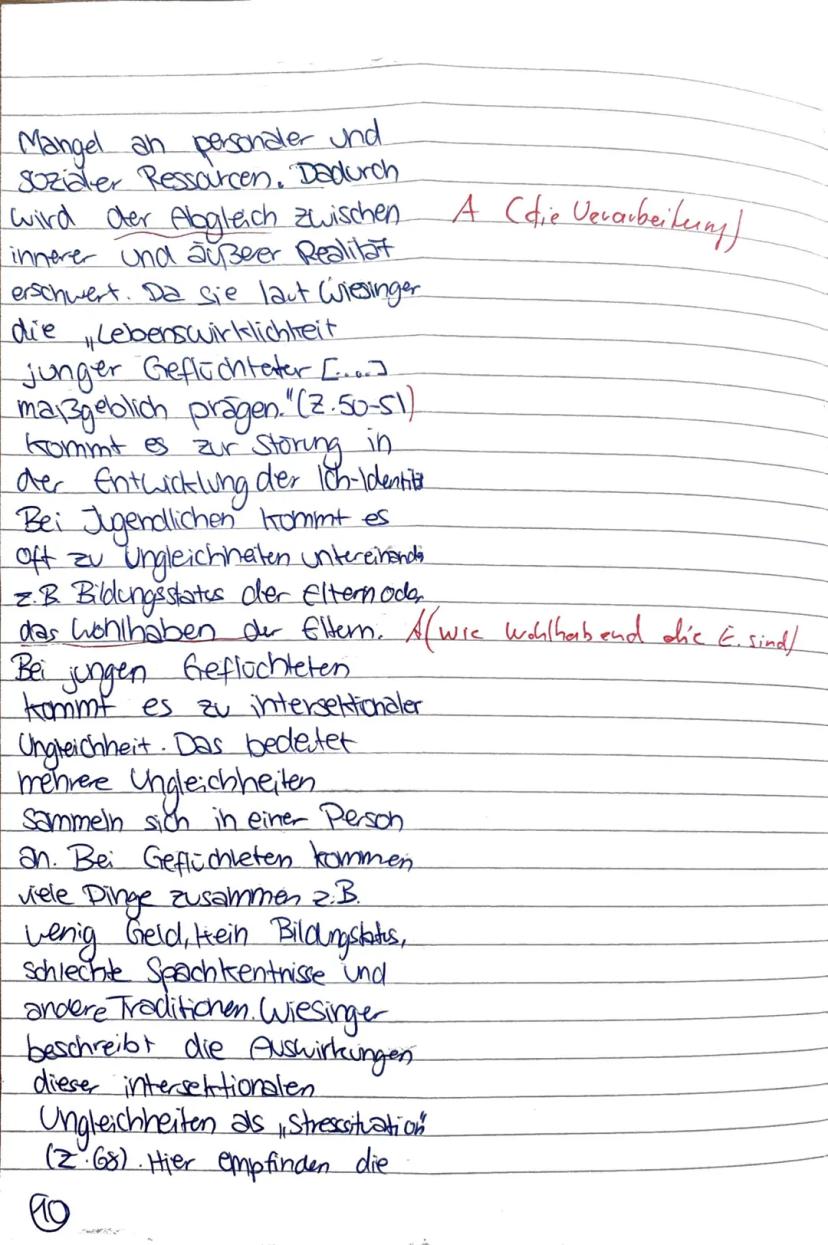 Mangel an personaler und
sozialer Ressourcen. Dadurch
wird der Abgleich zwischen A (die Verarbeitung)
innerer und äußerer Realität
erschwert. Da sie laut Wiesinger
die „Lebenswirklichkeit
junger Geflüchteter [....]
maßgeblich prägen."(Z.50-51)
kommt es zur Störung in
der Entwicklung der Ich-Identität
Bei Jugendlichen kommt es
oft zu Ungleichheiten untereinander
z.B. Bildungsstatus der Eltern oder
das Wohlhaben der Eltern. A(wie wohlhabend die E. sind)
Bei jungen Geflüchteten
kommt es zu intersektionaler
Ungleichheit. Das bedeutet
mehrere Ungleichheiten
sammeln sich in einer Person
an. Bei Geflüchteten kommen
viele Dinge zusammen z.B.
wenig Geld, kein Bildungstatus,
schlechte Spachkentnisse und
andere Traditionen. Wiesinger
beschreibt die Auswirkungen
dieser intersektionalen
Ungleichheiten als „Stresssituation"
(Z.68). Hier empfinden die
10